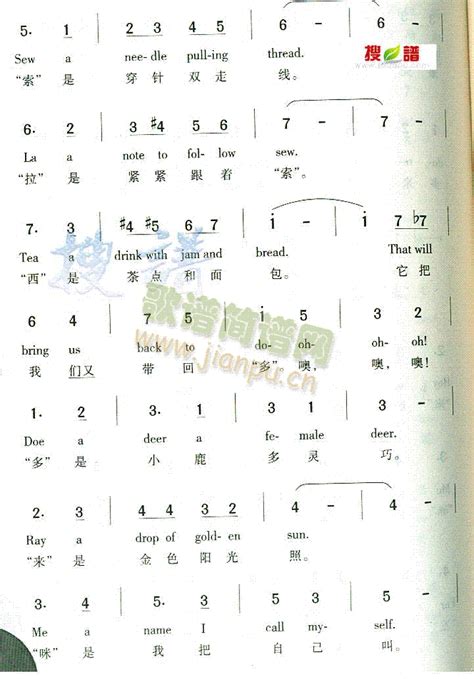 搜谱
5. 1 | 2 3 4 5 | 6 - | 6 -
Sew a nee-dle pull-ing thread.
“索”是 穿针双走 线。
6. 2 | 3 #4 5 6 | 7 - | 7 -
La a note to fol-low sew.
“拉”是 紧紧跟着 “索”。
7. 3 | #4 #5 6 7 | i - | i 7 ♭7
Tea a drink with jam and bread. That will
“西”是 茶点和面 包。 它把
搜谱
6 4 | 7 5 | i 5 | 3 2
bring us back to do- oh- oh- oh!
我 们又 带 回 “多”。噢， 噢，噢！
歌谱简谱网
www.jianpu.cn
1. 2 | 3. 1 | 3 1 | 3 -
Doe a deer a fe- male deer.
“多”是 小 鹿 多 灵 巧。
2. 3 | 4 4 3 2 | 4 - | 4 -
Ray a drop of gold-en sun.
“来”是 金色阳光 照。
3. 4 | 5. 3 | 5 3 | 5 -
Me a name I call my- self.
“咪”是 我 把 自 己 叫。